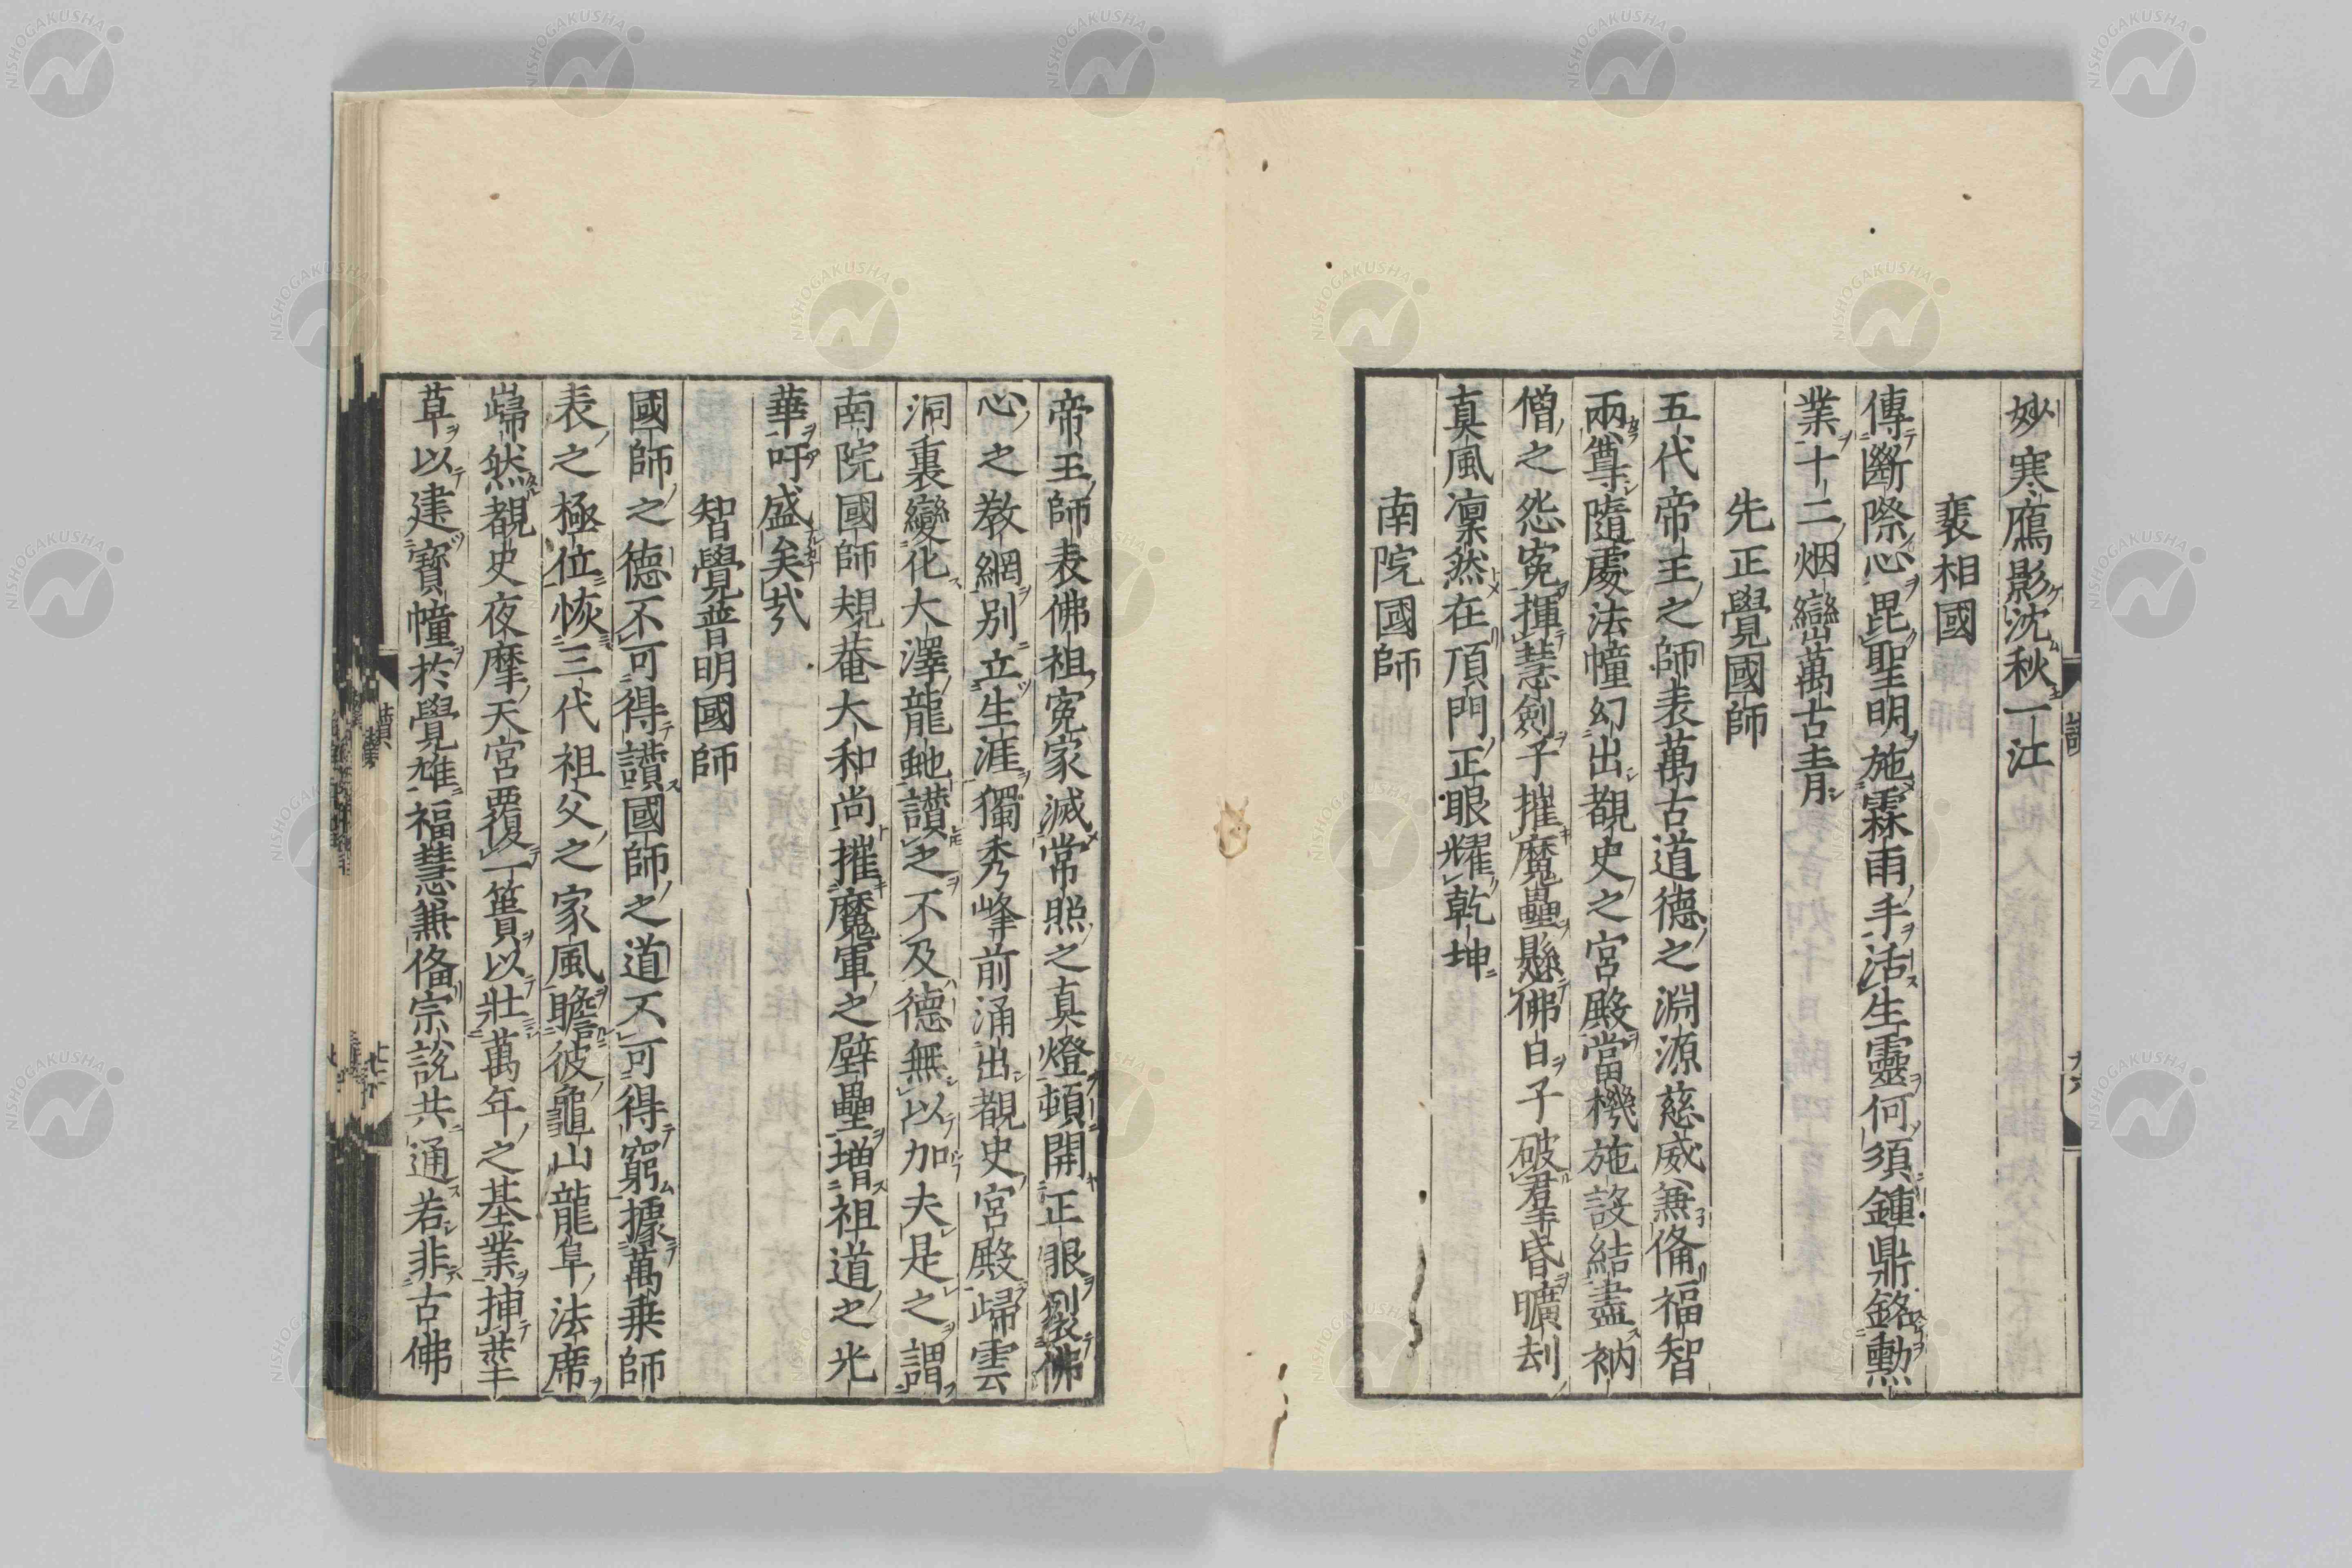 妙寒鴈影沈秋一江
裴相國
傳斷際心毘聖明施霖雨手活生靈何須鍾鼎銘勲
業十二烟巒萬古青
先正覺國師
五代帝王之師表萬古道德之淵源慈威兼俻福智
兩尊隨處法幢幻出覩史之宮殿當機施設結盡衲
僧之怨寃揮慧劍子摧魔壘懸佛日子破羣昏曠刦
真風凜然在頂門正眼耀乾坤
南院國師
帝王師表佛祖寃家滅常照之真燈頓開正眼裂佛
心之教網別立生涯獨秀峰前涌出覩史宮殿歸雲
洞裏變化大澤龍虵讃之不及德無以加夫是之謂
南院國師規菴大和尚摧魔軍之壁壘増祖道之光
華吁盛矣㢤
智覺普明國師
國師之德不可得讃國師之道不可得窮據萬乗師
表之極位恢三代祖父之家風瞻彼龜山龍阜法席
巋然覩史夜摩天宮覆一簣以壯萬年之基業捧莖
草以建寳幢於覺雄福慧兼俻宗説共通若非古佛
NISHOGAKUSHA